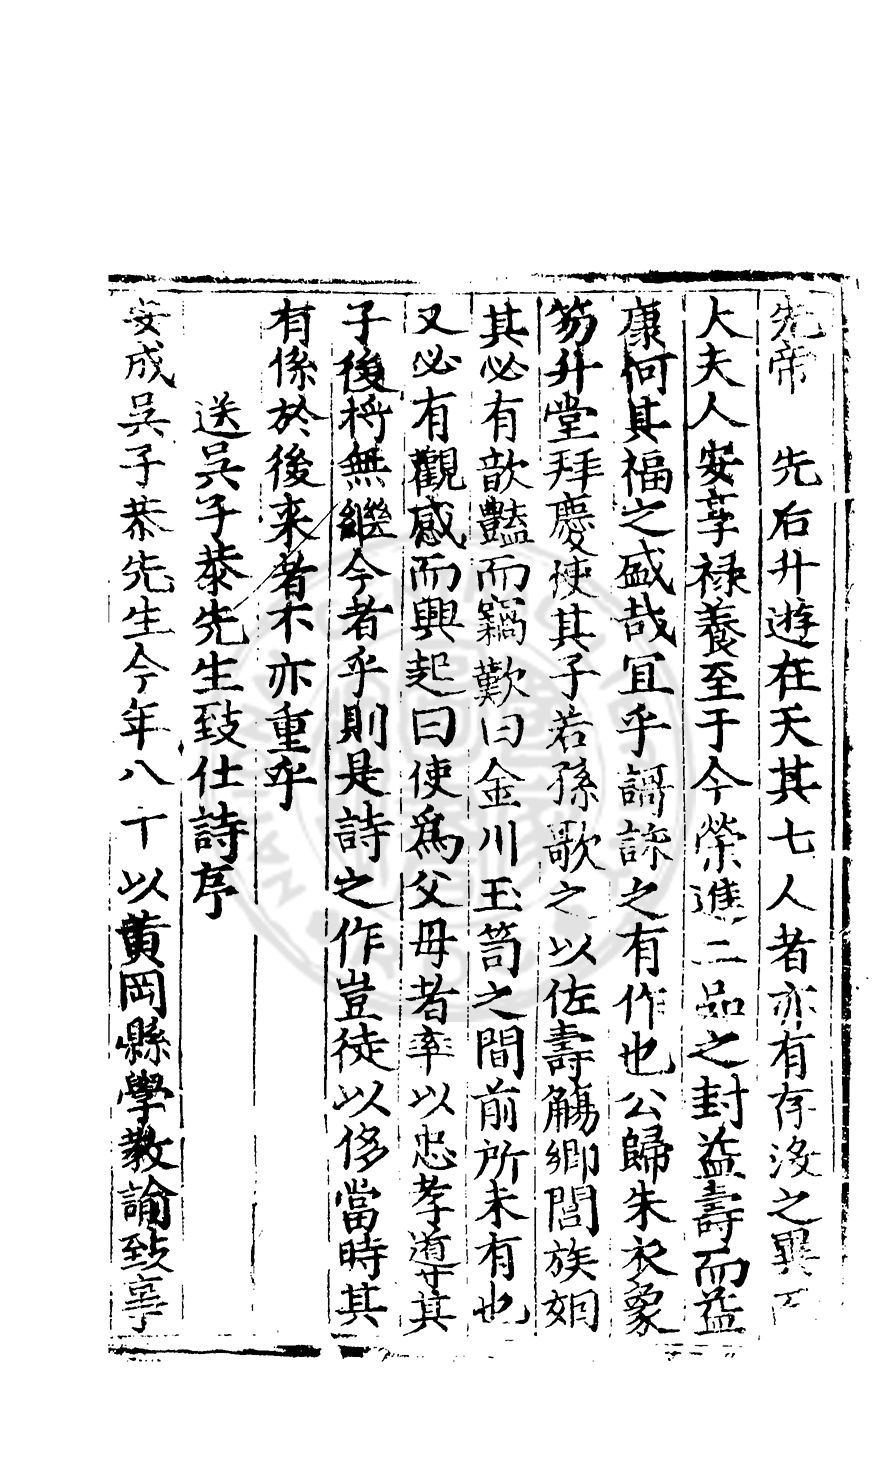 先帝　先后升遊在天其七人者亦有存没之異而
大夫人安享禄養至于今榮進二品之封益壽而益
康何其福之盛哉冝乎謌詠之有作也公歸朱衣象
笏升堂拜慶使其子若孫歌之以佐壽觴鄉閭族姻
其必有歆豔而竊歎曰金川玉笥之間前所未有也
又必有觀感而興起曰使爲父母者率以忠孝導其
子後將無繼今者乎則是詩之作豈徒以侈當時其
有係於後来者不亦重乎
送吳子恭先生致仕詩序
安成吳子恭先生今年八十以黄岡縣學教諭致事